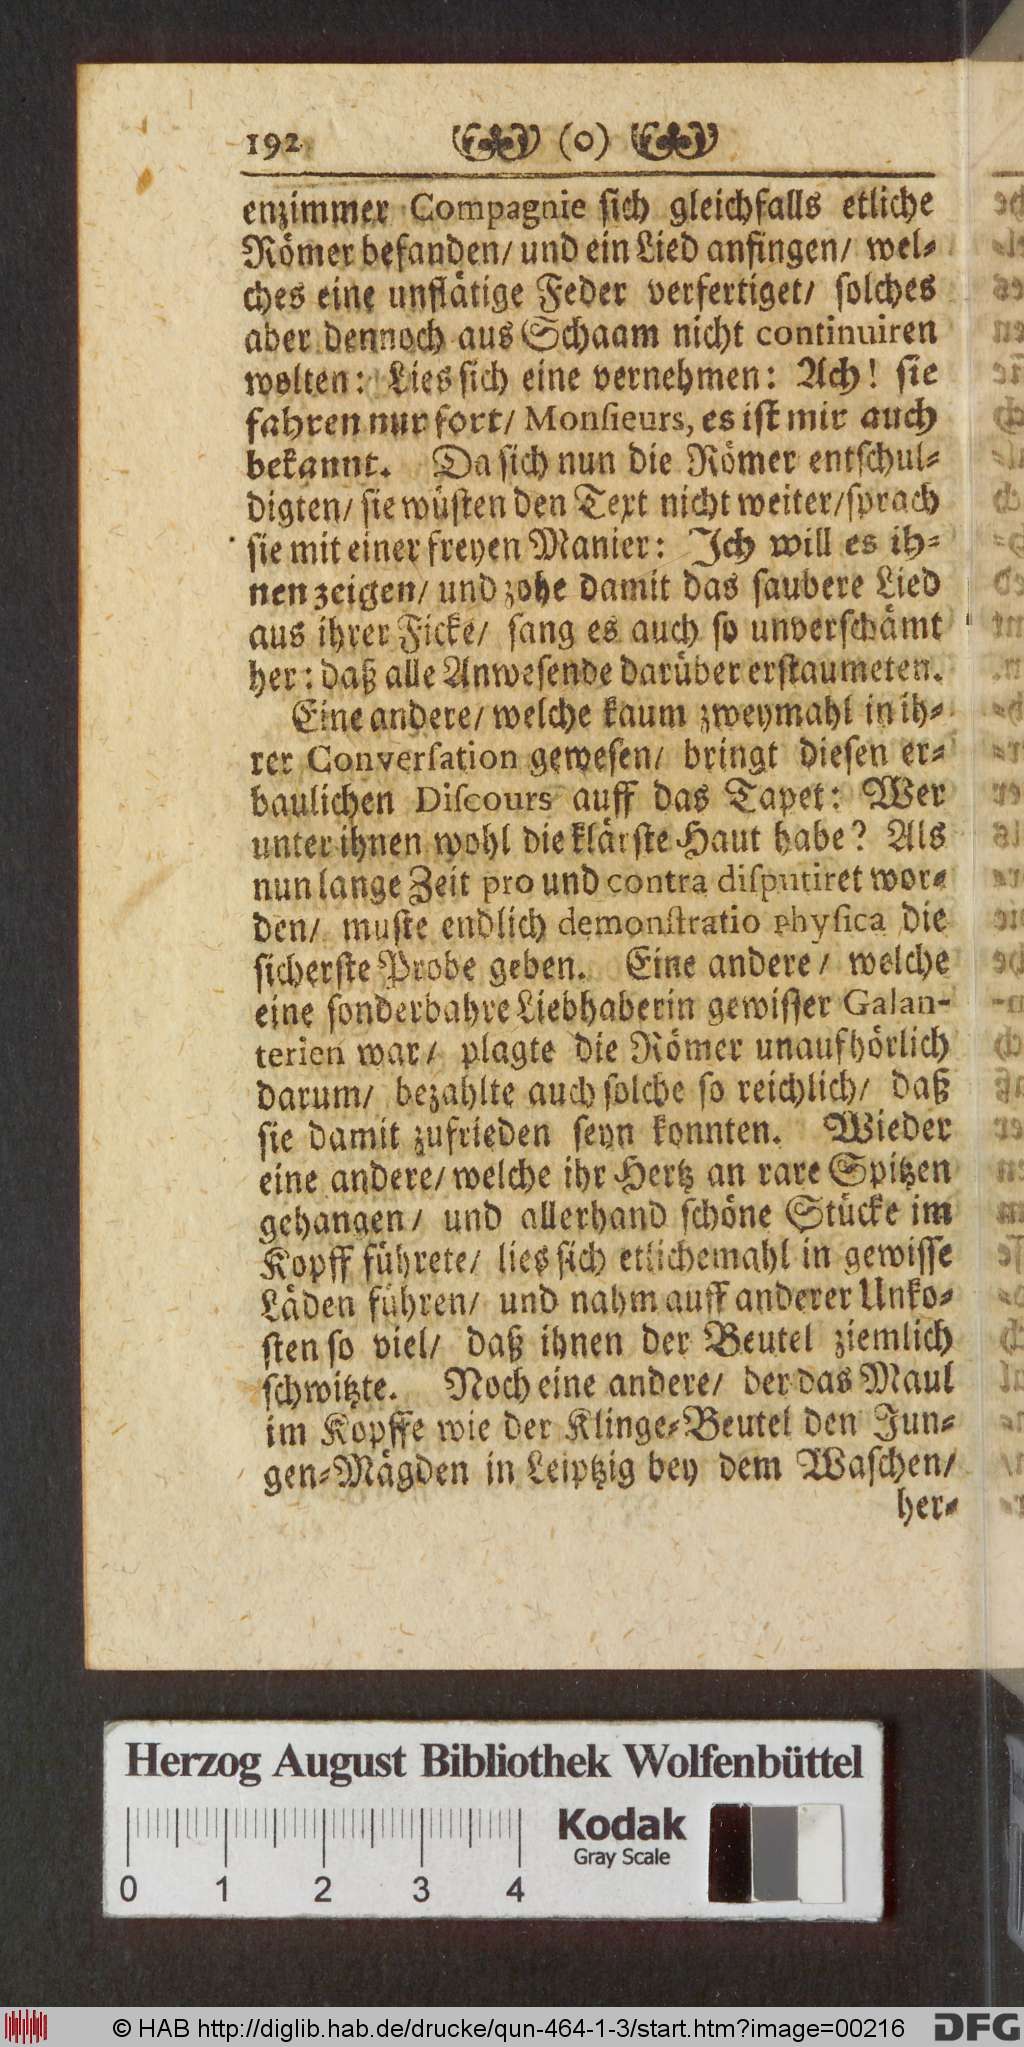 192 (o)
enzimmer Compagnie sich gleichfalls etliche
Römer befanden/ und ein Lied anfingen/ wel-
ches eine unflätige Feder verfertiget/ solches
aber dennoch aus Schaam nicht continuiren
wolten: Lies sich eine vernehmen: Ach! sie
fahren nur fort/ Monsieurs, es ist mir auch
bekannt. Da sich nun die Römer entschul-
digten/ sie wüsten den Text nicht weiter/ sprach
sie mit einer freyen Manier: Ich will es ih-
nen zeigen/ und zohe damit das saubere Lied
aus ihrer Ficke/ sang es auch so unverschämt
her: daß alle Anwesende darüber erstaumeten.
Eine andere/ welche kaum zweymahl in ih-
rer Conversation gewesen/ bringt diesen er-
baulichen Discours auff das Tapet: Wer
unter ihnen wohl die klärste Haut habe? Als
nun lange Zeit pro und contra disputiret wor-
den/ muste endlich demonstratio physica die
sicherste Probe geben. Eine andere/ welche
eine sonderbahre Liebhaberin gewisser Galan-
terien war/ plagte die Römer unaufhörlich
darum/ bezahlte auch solche so reichlich/ daß
sie damit zufrieden seyn konnten. Wieder
eine andere/ welche ihr Hertz an rare Spitzen
gehangen/ und allerhand schöne Stücke im
Kopff führete/ lies sich etlichemahl in gewisse
Läden führen/ und nahm auff anderer Unko-
sten so viel/ daß ihnen der Beutel ziemlich
schwitzte. Noch eine andere/ der das Maul
im Kopffe wie der Klinge-Beutel den Jun-
gen-Mägden in Leiptzig bey dem Waschen/
her-
Herzog August Bibliothek Wolfenbüttel
Kodak
Gray Scale
0 1 2 3 4
© HAB http://diglib.hab.de/drucke/qun-464-1-3/start.htm?image=00216
DFG